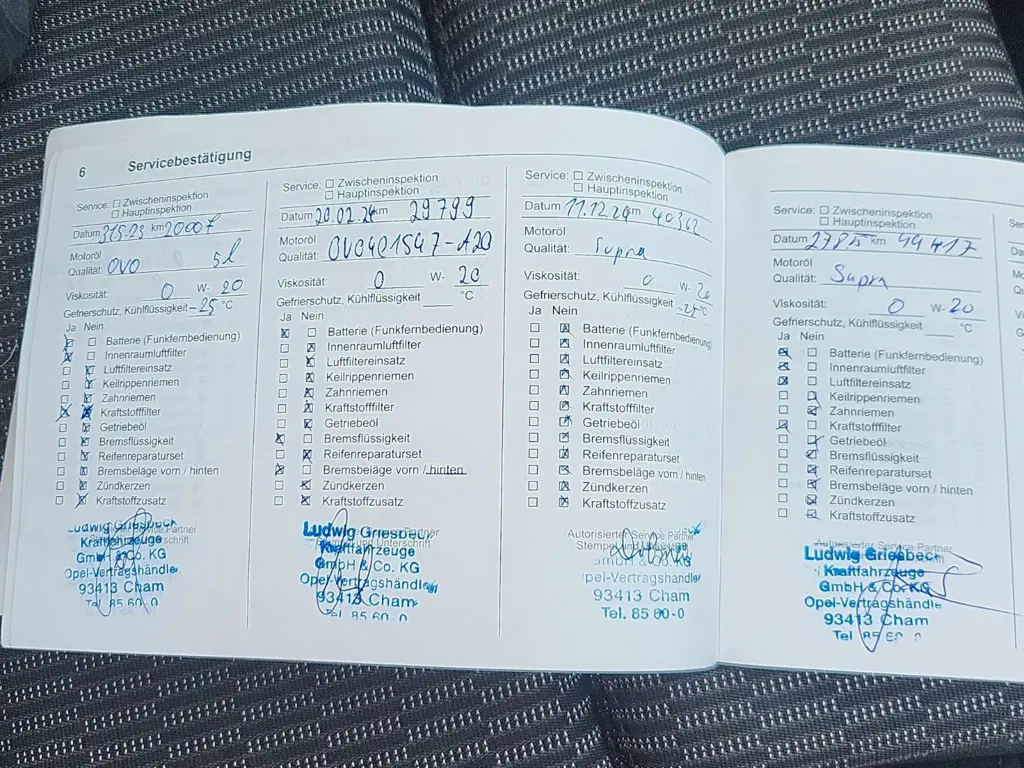 6 Servicebestätigung
Service: ☐ Zwischeninspektion
☐ Hauptinspektion
Datum 31.5.23 km 20007
Motoröl
Qualität: OVO 5l
Viskosität: 0 W- 20
Gefrierschutz, Kühlflüssigkeit -25 °C
Ja Nein
Batterie (Funkfernbedienung)
Innenraumluftfilter
Luftfiltereinsatz
Keilrippenriemen
Zahnriemen
Kraftstofffilter
Getriebeöl
Bremsflüssigkeit
Reifenreparaturset
Bremsbeläge vorn / hinten
Zündkerzen
Kraftstoffzusatz
Ludwig Griesbeck
Kraftfahrzeuge
GmbH & Co. KG
Opel-Vertragshändler
93413 Cham
Tel. 85 60-0
Service: ☐ Zwischeninspektion
☐ Hauptinspektion
Datum 20.02.24 km 29799
Motoröl
Qualität: OV0401547-A20
Viskosität: 0 W- 20
Gefrierschutz, Kühlflüssigkeit °C
Ja Nein
Batterie (Funkfernbedienung)
Innenraumluftfilter
Luftfiltereinsatz
Keilrippenriemen
Zahnriemen
Kraftstofffilter
Getriebeöl
Bremsflüssigkeit
Reifenreparaturset
Bremsbeläge vorn / hinten
Zündkerzen
Kraftstoffzusatz
Ludwig Griesbeck
Kraftfahrzeuge
GmbH & Co. KG
Opel-Vertragshändler
93413 Cham
Tel. 85 60-0
Service: ☐ Zwischeninspektion
☐ Hauptinspektion
Datum 11.12.24 km 40362
Motoröl
Qualität: Supra
Viskosität: 0 W- 20
Gefrierschutz, Kühlflüssigkeit -25 °C
Ja Nein
Batterie (Funkfernbedienung)
Innenraumluftfilter
Luftfiltereinsatz
Keilrippenriemen
Zahnriemen
Kraftstofffilter
Getriebeöl
Bremsflüssigkeit
Reifenreparaturset
Bremsbeläge vorn / hinten
Zündkerzen
Kraftstoffzusatz
Autorisierter Service Partner
GmbH & Co. KG
Opel-Vertragshändler
93413 Cham
Tel. 85 60-0
Service: ☐ Zwischeninspektion
☐ Hauptinspektion
Datum km 44417
Motoröl
Qualität: Supra
Viskosität: 0 W- 20
Gefrierschutz, Kühlflüssigkeit °C
Ja Nein
Batterie (Funkfernbedienung)
Innenraumluftfilter
Luftfiltereinsatz
Keilrippenriemen
Zahnriemen
Kraftstofffilter
Getriebeöl
Bremsflüssigkeit
Reifenreparaturset
Bremsbeläge vorn / hinten
Zündkerzen
Kraftstoffzusatz
Autorisierter Service Partner
Ludwig Griesbeck
Kraftfahrzeuge
GmbH & Co. KG
Opel-Vertragshändle
93413 Cham
Tel 85 60 0